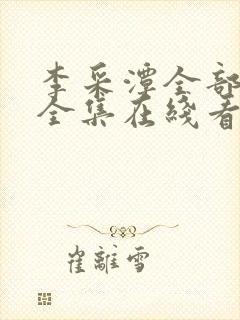 李采潭全部
全集在线看
崔離雪